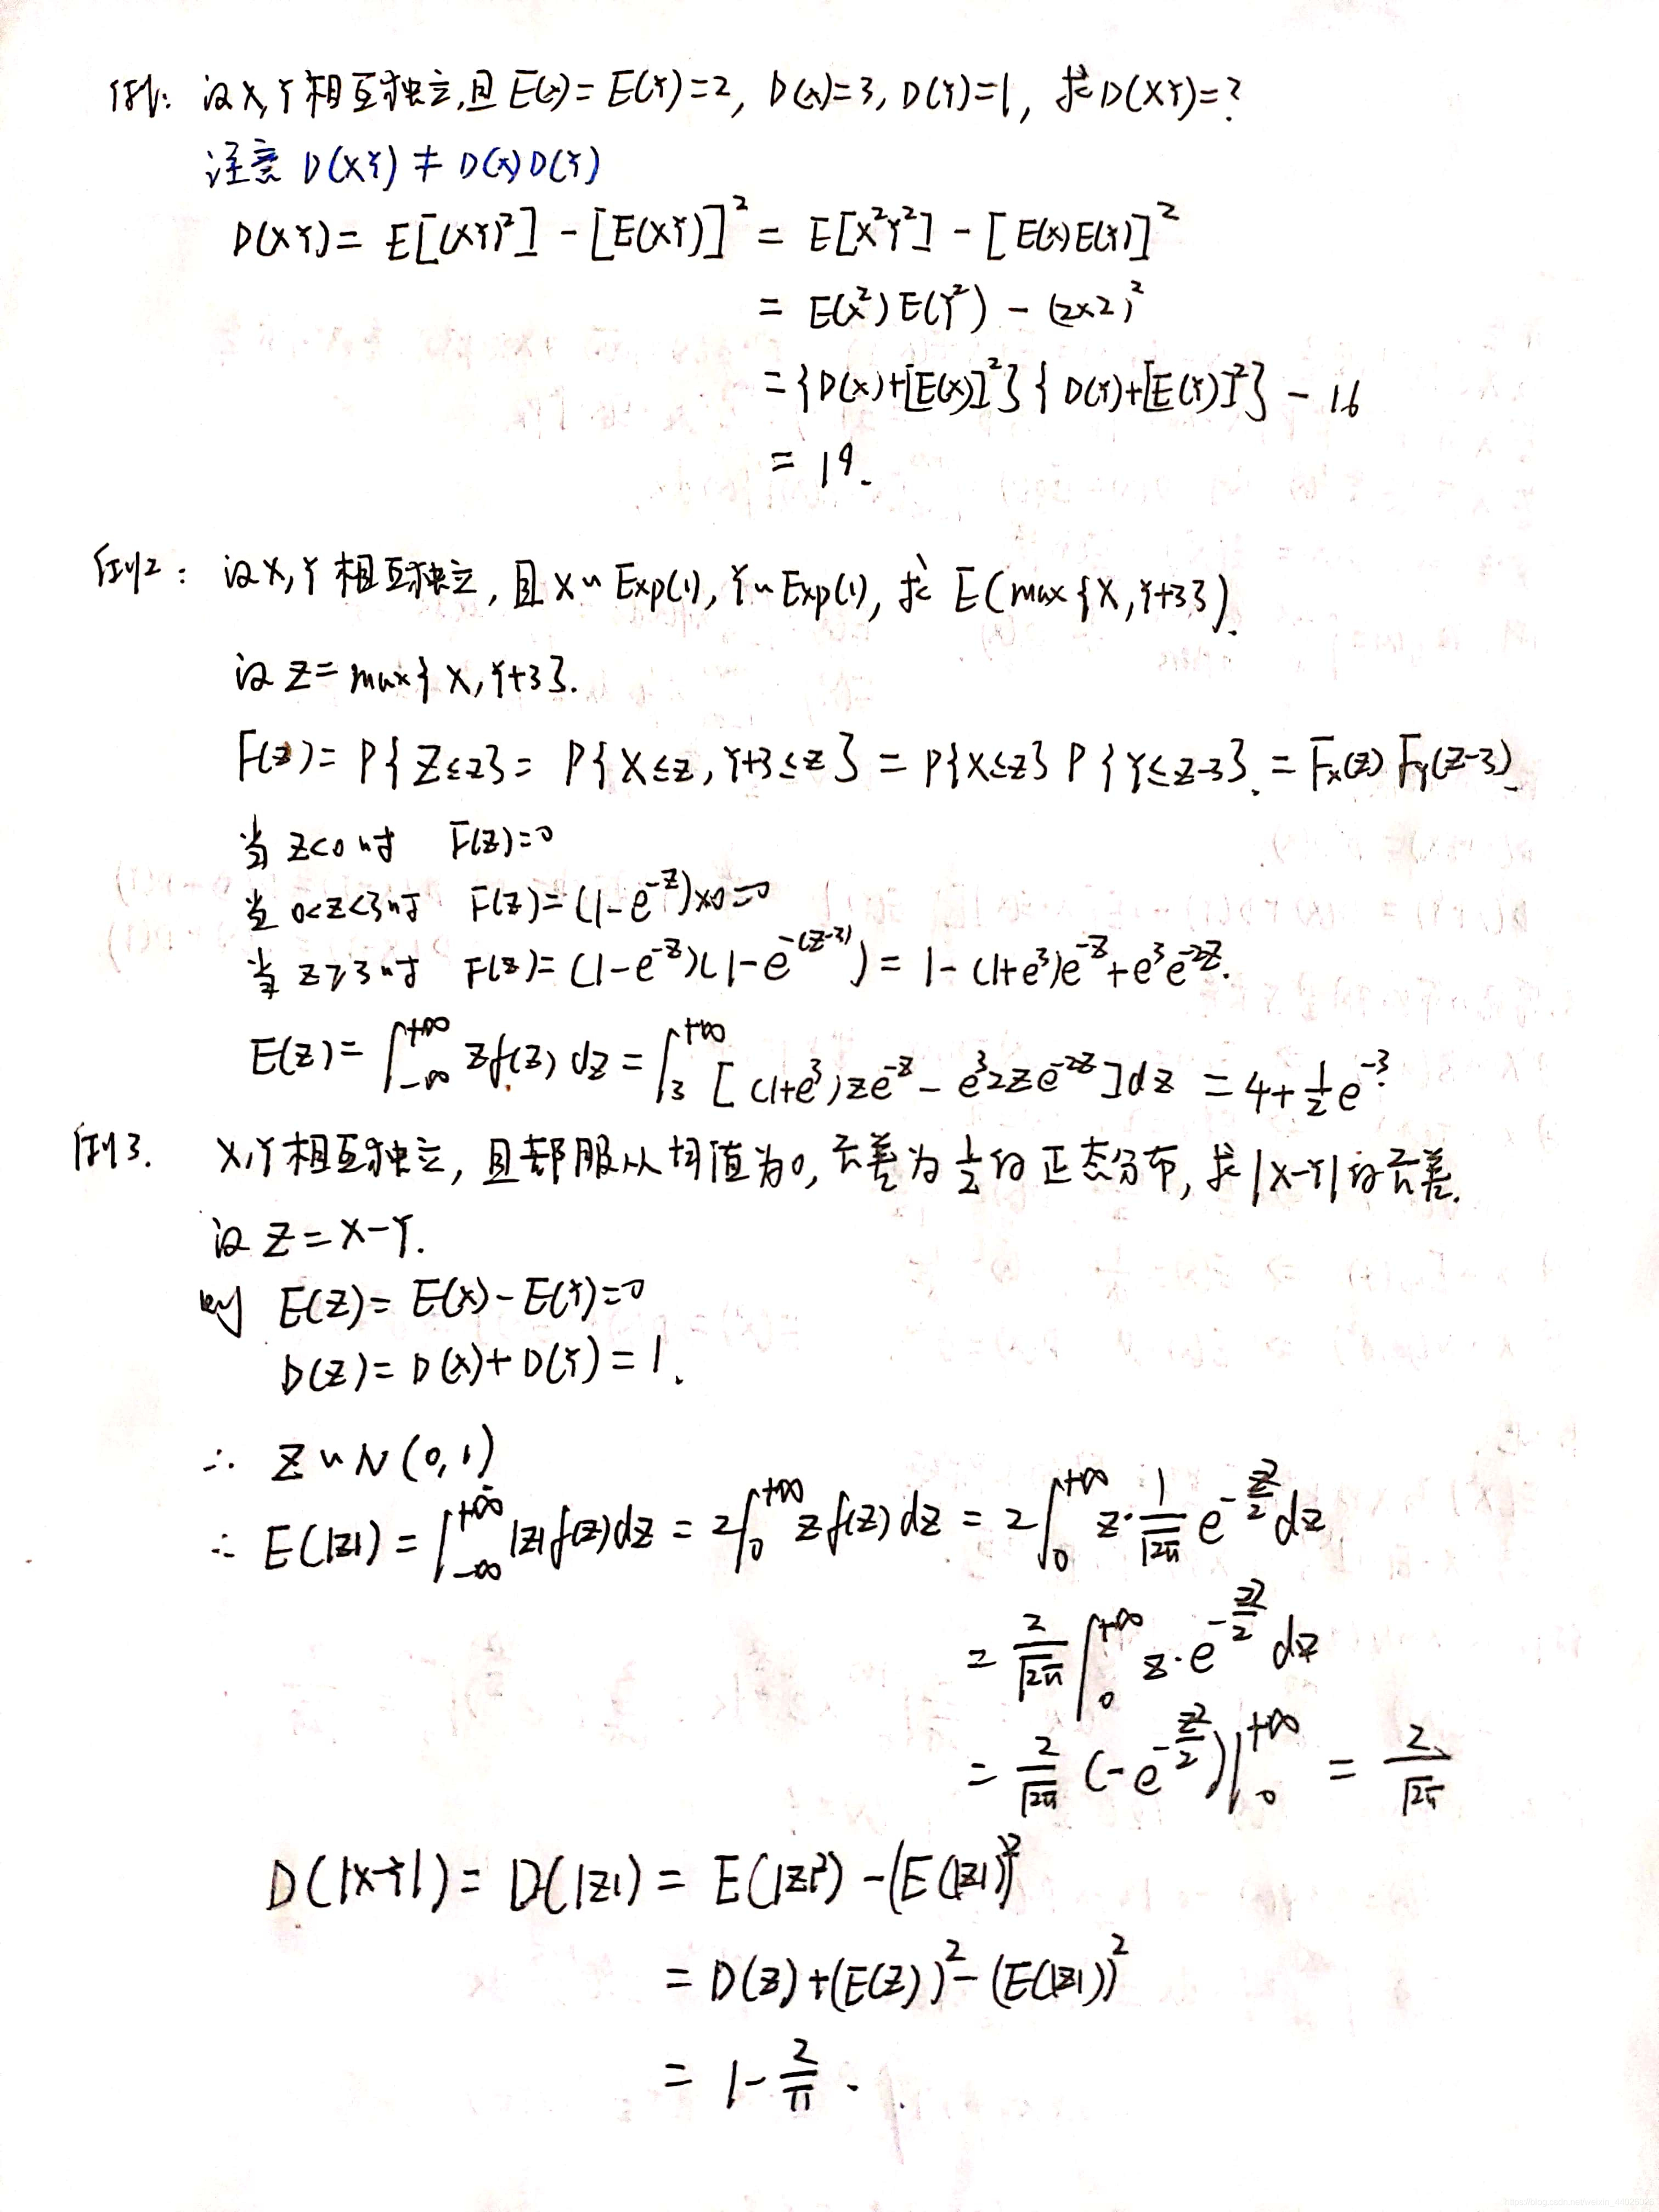 例1: 设X,Y相互独立,且E(X)=E(Y)=2, D(X)=3, D(Y)=1, 求D(XY)=?
注意 D(XY) ≠ D(X)D(Y)
D(XY) = E[(XY)²] - [E(XY)]² = E[X²Y²] - [E(X)E(Y)]²
= E(X²)E(Y²) - (2×2)²
= {D(X)+[E(X)]²}{D(Y)+[E(Y)]²} - 16
= 19.
例2: 设X,Y相互独立, 且X~Exp(1), Y~Exp(1), 求 E(max{X,Y+3}).
设 Z = max{X,Y+3}.
F(z) = P{Z≤z} = P{X≤z, Y+3≤z} = P{X≤z}P{Y≤z-3}. = F_X(z) F_Y(z-3).
当 z<0时 F(z)=0
当 0<z<3时 F(z)=(1-e^{-z})×0=0
当 z≥3时 F(z)=(1-e^{-z})(1-e^{-(z-3)}) = 1-(1+e³)e^{-z}+e³e^{-2z}.
E(Z) = ∫_{-∞}^{+∞} zf(z)dz = ∫_3^{+∞} [(1+e³)ze^{-z} - e³2ze^{-2z}]dz = 4+\frac{1}{2}e^{-3}.
例3. X,Y相互独立, 且都服从均值为0, 方差为\frac{1}{2}的正态分布, 求|X-Y|的方差.
设 Z = X-Y.
则 E(Z) = E(X)-E(Y)=0
D(Z) = D(X)+D(Y) = 1.
∴ Z~N(0,1)
∴ E(|Z|) = ∫_{-∞}^{+∞} |z|f(z)dz = 2∫_0^{+∞} zf(z)dz = 2∫_0^{+∞} z·\frac{1}{\sqrt{2π}} e^{-\frac{z²}{2}}dz
= \frac{2}{\sqrt{2π}} ∫_0^{+∞} z·e^{-\frac{z²}{2}} dz
= \frac{2}{\sqrt{2π}} (-e^{-\frac{z²}{2}})|_0^{+∞} = \frac{2}{\sqrt{2π}}
D(|X-Y|) = D(|Z|) = E(|Z|²) - (E(|Z|))²
= D(Z)+(E(Z))² - (E(|Z|))²
= 1-\frac{2}{π}.